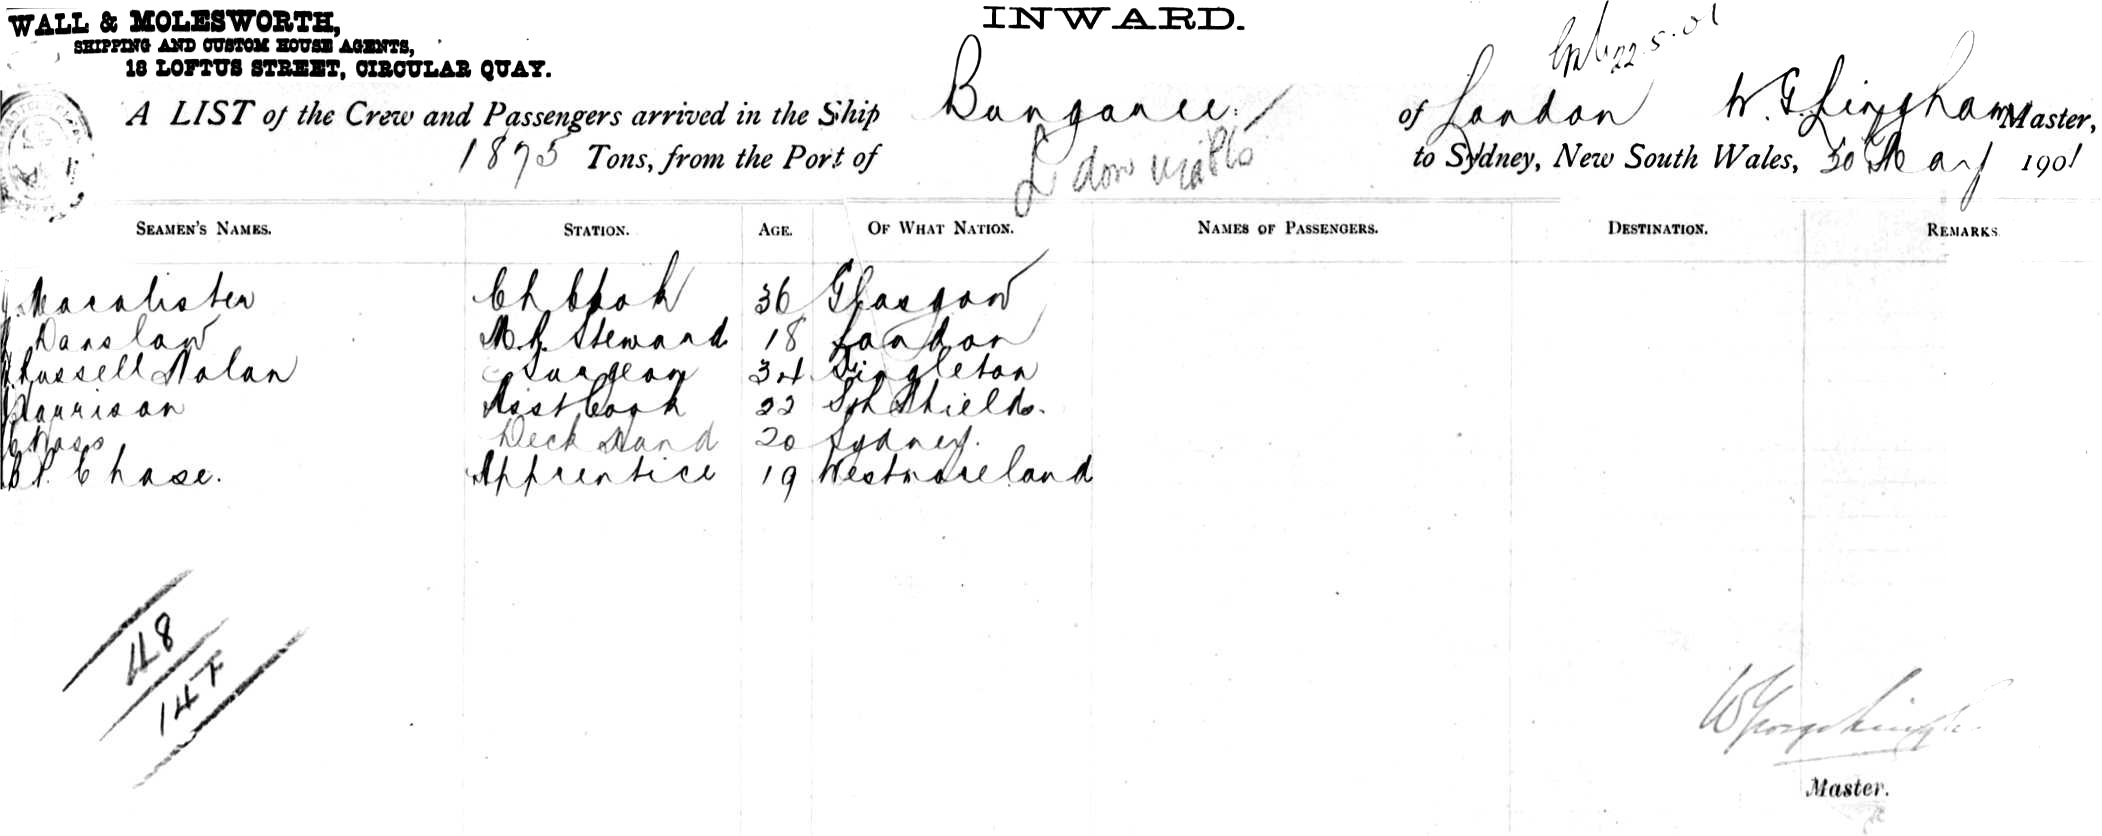 WALL & MOLESWORTH,
SHIPPING AND CUSTOM HOUSE AGENTS,
18 LOFTUS STREET, CIRCULAR QUAY.
INWARD.
22.5.01
A LIST of the Crew and Passengers arrived in the Ship Bungaree of London W. G. Lingham Master,
1875 Tons, from the Port of London via Pts to Sydney, New South Wales, 20 May 1901
SEAMEN'S NAMES. STATION. AGE. OF WHAT NATION. NAMES OF PASSENGERS. DESTINATION. REMARKS
Macalister Ch Cook 36 Glasgow
Danslow M.R. Steward 18 London
Russell Nolan Surgeon 34 Singleton
Harrison Asst Cook 22 Sth Shields.
Deck Hand 20 Sydney.
B P. Chase. Apprentice 19 Westmoreland
118
147
Master.